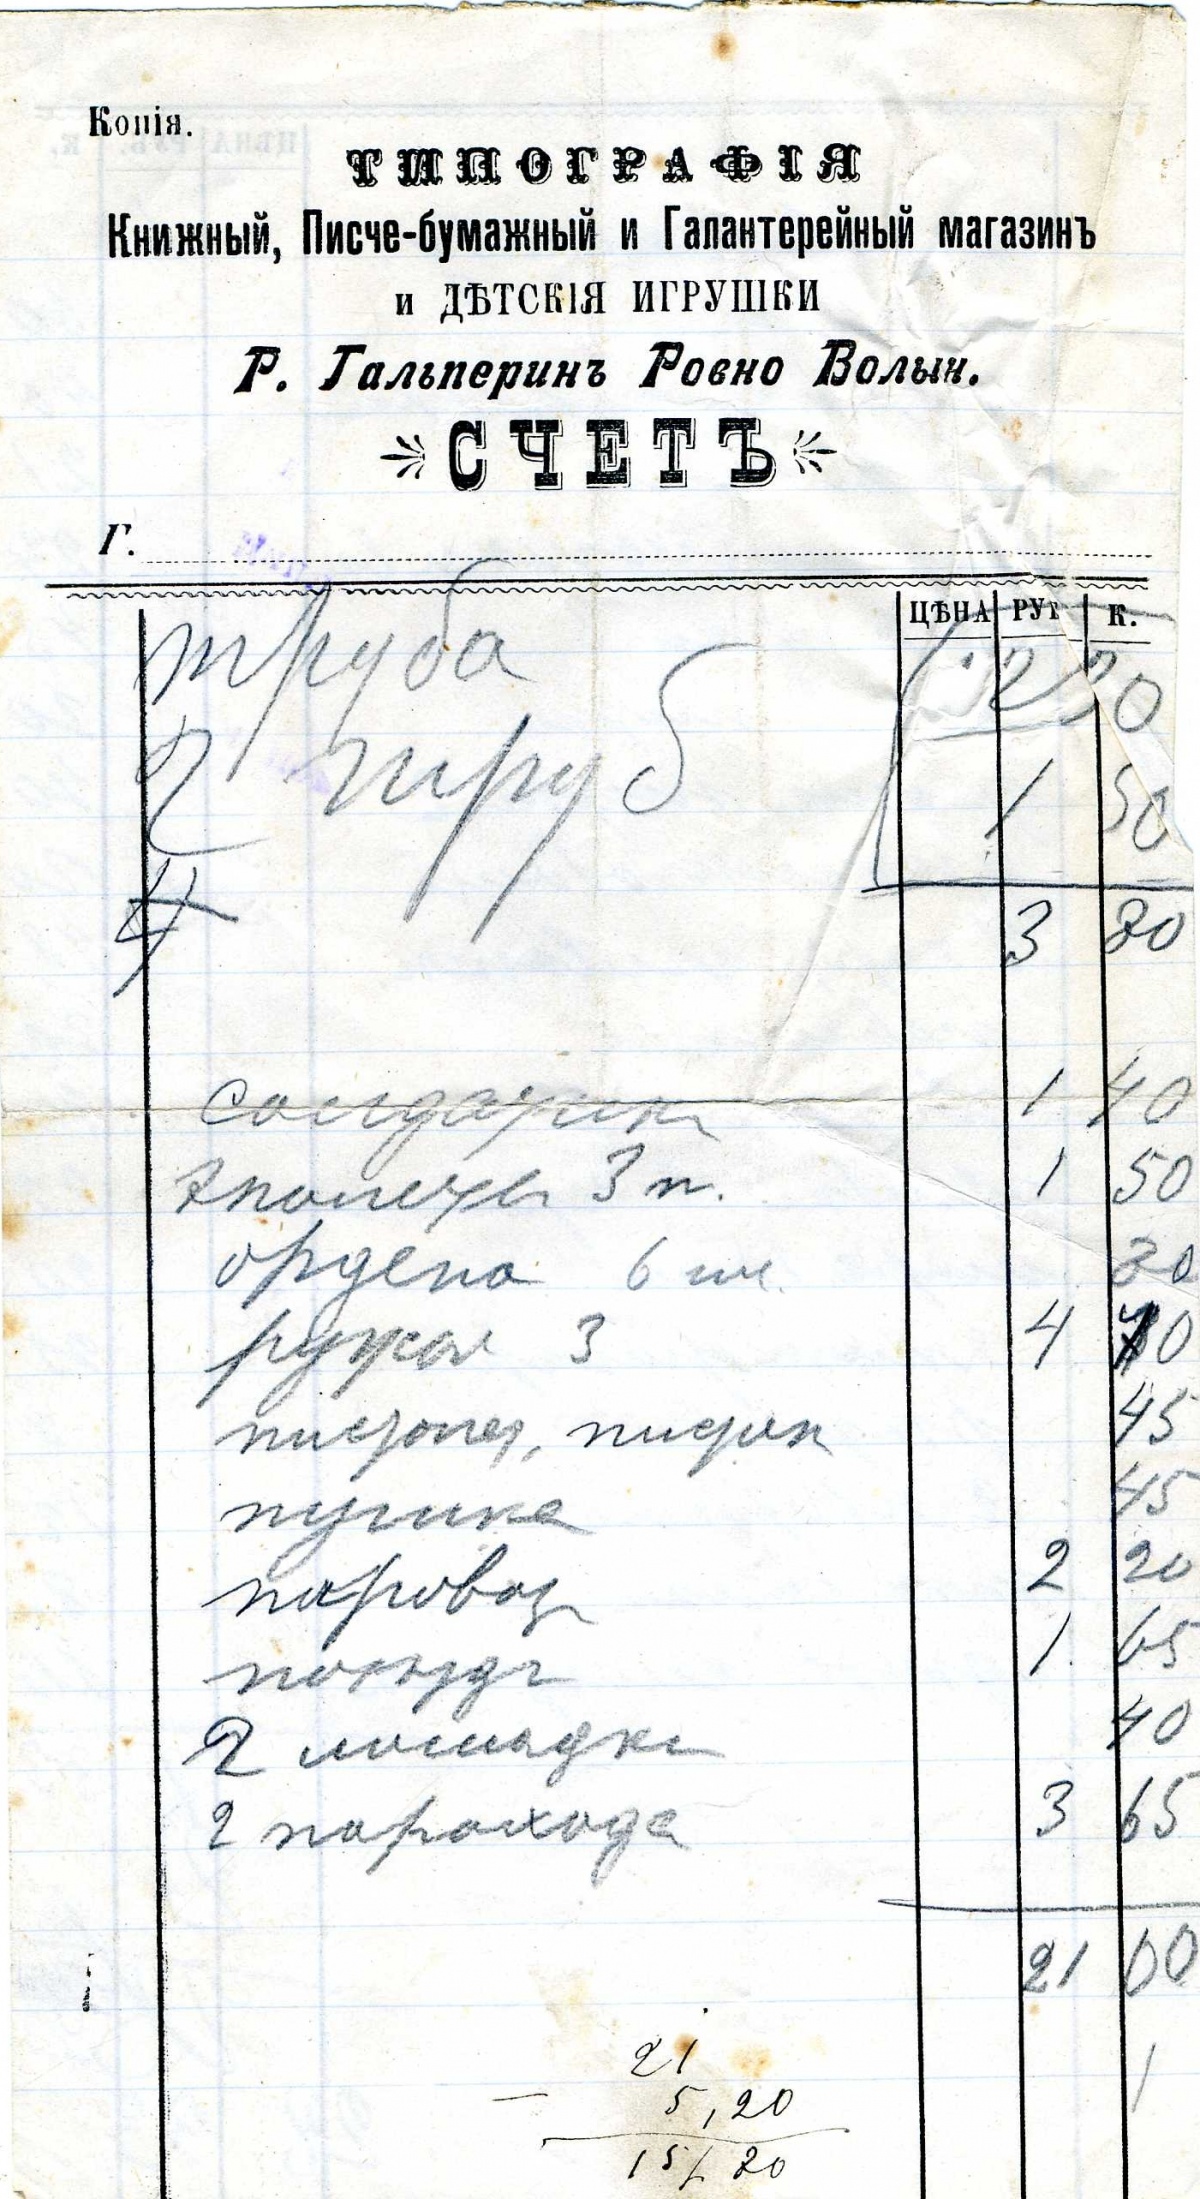 Копія.
ТИПОГРАФІЯ
Книжный, Писче-бумажный и Галантерейный магазинъ
и ДѢТСКІЯ ИГРУШКИ
Р. Гальперинъ Ровно Волын.
СЧЕТЪ
Г.
ЦѢНА РУБ К.
труба 2 30
2 труб 1 50
4 3 80
солдатик 1 40
эполеты 3 п. 1 50
ордена 6 шт. 30
ружья 3 4
пистолет, пистон 45
пушка 45
паровоз 2 20
посуда 1 65
2 лошадки 40
2 парохода 3 65
21 00
1
21
— 5,20
15, 20